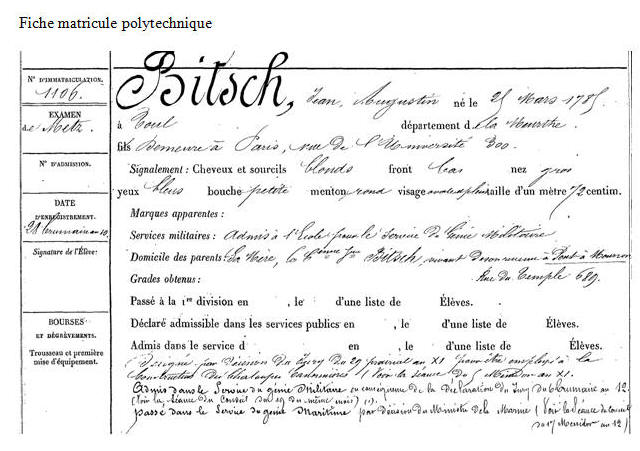 Fiche matricule polytechnique
N° D'IMMATRICULATION.
1106.
EXAMEN
de Metz.
N° D'ADMISSION.
DATE
D'ENREGISTREMENT.
21 brumaire an 10.
Signature de l'Élève:
BOURSES
ET DÉGRÈVEMENTS.
Trousseau et première
mise d'équipement.
Bitsch, Jean, Augustin né le 25 Mars 1785
à Toul département d la Meurthe
fils Demeure à Paris, rue de l'Université 300.
Signalement : Cheveux et sourcils blonds front bas nez gros
yeux bleus bouche petite menton rond visage ovale plein taille d'un mètre 72 centim.
Marques apparentes :
Services militaires : Admis à l'Ecole pour le Service du Génie Militaire
Domicile des parents : La Mère, la Bitsch, vivant de son revenu à Pont à Mousson
Rue du Temple 689.
Grades obtenus :
Passé à la 1re division en , le d'une liste de Élèves.
Déclaré admissible dans les services publics en , le d'une liste de Élèves.
Admis dans le service d en , le d'une liste de Élèves.
(Désigné par décision du Jury du 29 prairial an XI pour être employé à la
Construction des Chaloupes Canonnières (Voir la séance du 5 Messidor an XI.
Admis dans le Service du génie Militaire en conséquence de la déclaration du Jury du brumaire an 12
(Voir la Séance du Conseil du 19 du même mois) (.).
passé dans le Service du génie Maritime par décision du Ministre de la Marine (Voir la Séance du conseil
du 17 Messidor an 12)